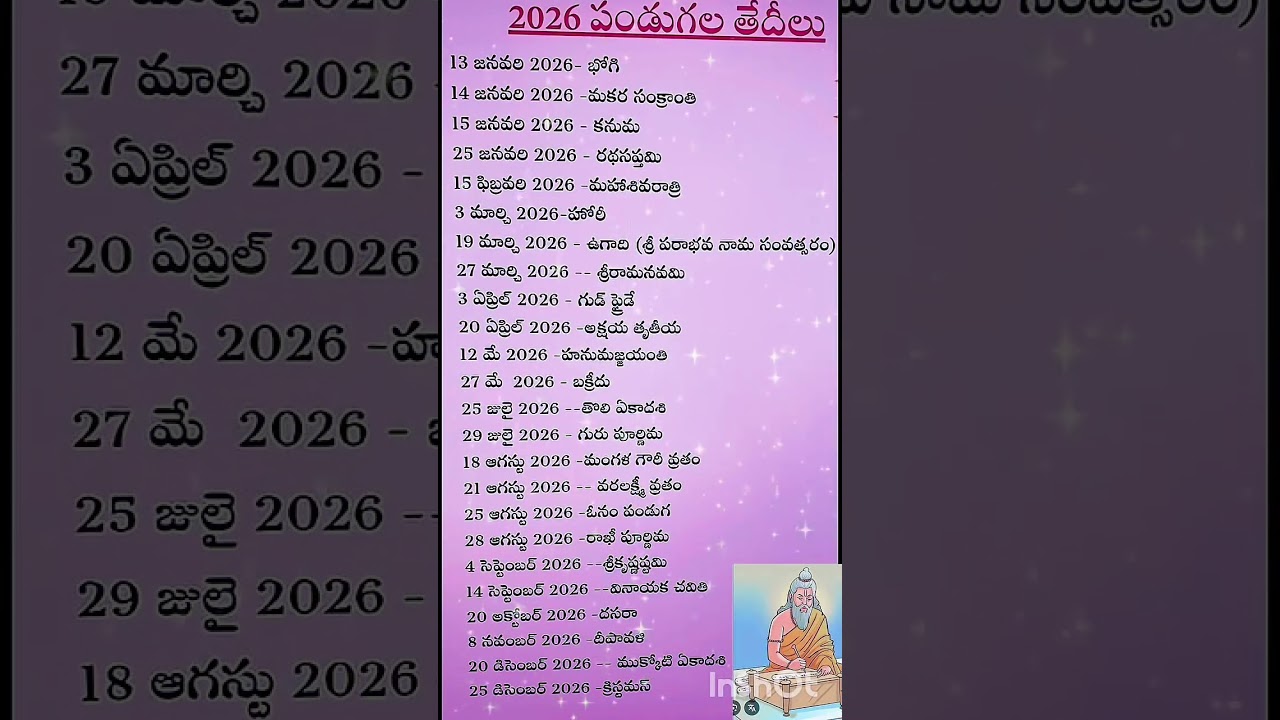 2026 పండుగల తేదీలు
13 జనవరి 2026- భోగి
14 జనవరి 2026 -మకర సంక్రాంతి
15 జనవరి 2026 - కనుమ
25 జనవరి 2026 - రథసప్తమి
15 ఫిబ్రవరి 2026 -మహాశివరాత్రి
3 మార్చి 2026-హోలీ
19 మార్చి 2026 - ఉగాది (శ్రీ పరాభవ నామ సంవత్సరం)
27 మార్చి 2026 -- శ్రీరామనవమి
3 ఏప్రిల్ 2026 - గుడ్ ఫ్రైడే
20 ఏప్రిల్ 2026 -అక్షయ తృతీయ
12 మే 2026 -హనుమజ్జయంతి
27 మే 2026 - బక్రీదు
25 జులై 2026 --తొలి ఏకాదశి
29 జులై 2026 - గురు పూర్ణిమ
18 ఆగస్టు 2026 -మంగళ గౌరీ వ్రతం
21 ఆగస్టు 2026 -- వరలక్ష్మీ వ్రతం
25 ఆగస్టు 2026 -ఓనం పండుగ
28 ఆగస్టు 2026 -రాఖీ పూర్ణిమ
4 సెప్టెంబర్ 2026 --శ్రీకృష్ణష్టమి
14 సెప్టెంబర్ 2026 --వినాయక చవితి
20 అక్టోబర్ 2026 -దసరా
8 నవంబర్ 2026 -దీపావళి
20 డిసెంబర్ 2026 -- ముక్కోటి ఏకాదశి
25 డిసెంబర్ 2026 -క్రిస్టమస్
InShOt
27 మార్చి 2026 -
3 ఏప్రిల్ 2026 -
20 ఏప్రిల్ 2026
12 మే 2026 -హ
27 మే 2026 -
25 జులై 2026 --
29 జులై 2026 -
18 ఆగస్టు 2026